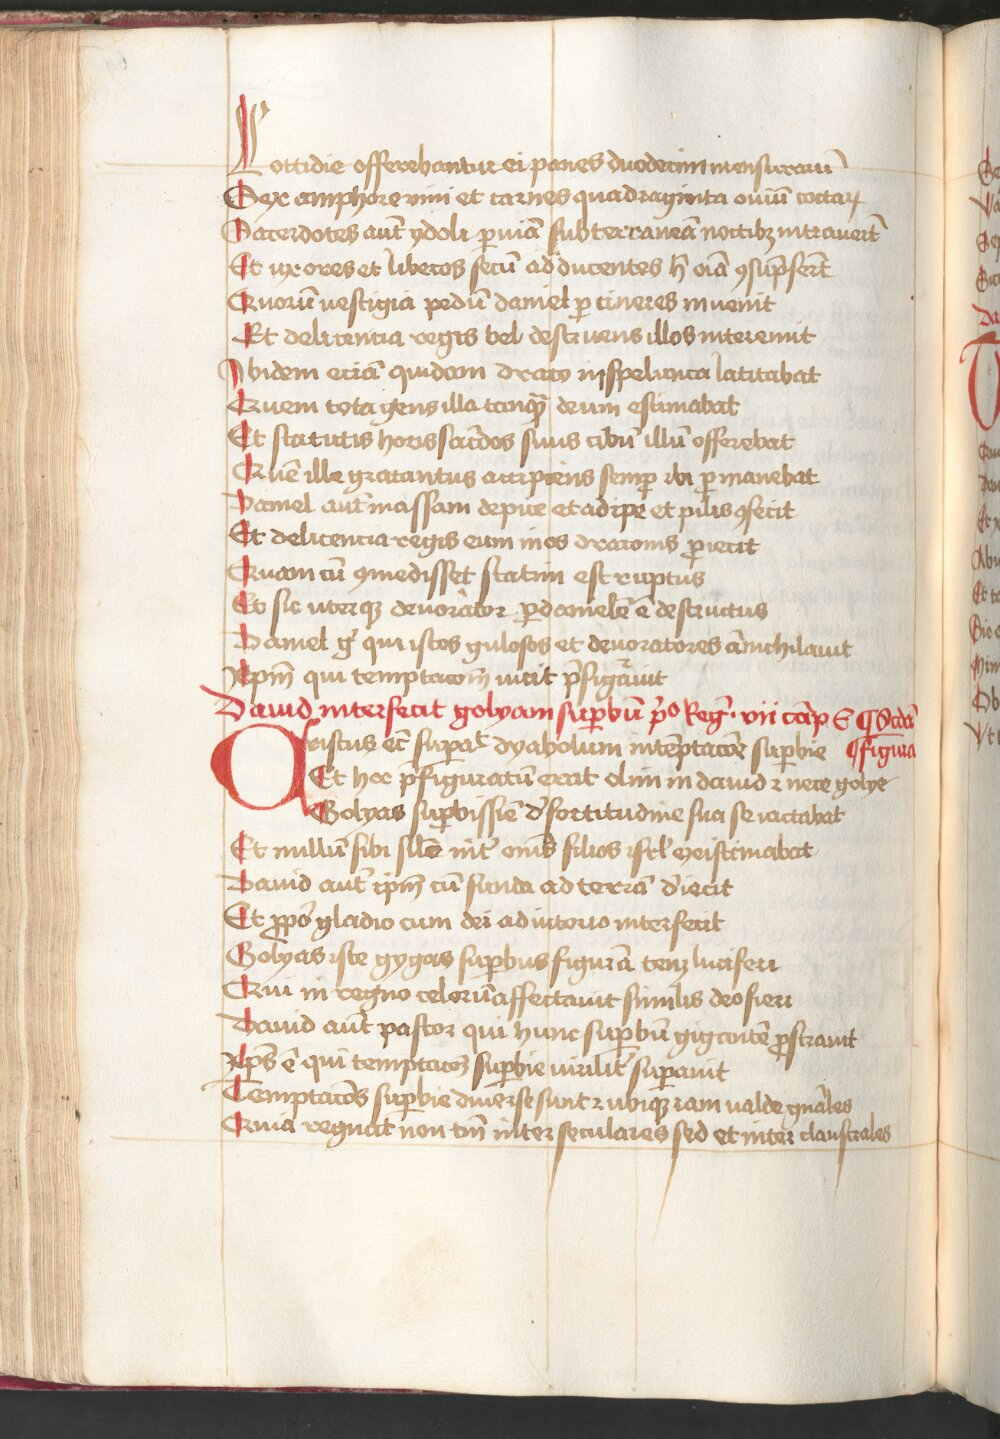 Cottidie offerebantur ei panes duodecim mensurarū
Sex amphore vini et carnes quadraginta oviū coctaꝝ
Sacerdotes aut̄ ydoli ꝑ viā subterraneā noctibꝫ intrauer̄t
Et uxores et liberos secū adducentes h̄ oīa ꝯsūpser̄t
Quorū uestigia pedū daniel ꝑ cineres inuenit
Et de licencia regis bel destruens illos interemit
Ibidem eciā quidam draco in spelunca latitabat
Quem tota gens illa tanqꝫ deum estimabat
Et statutis horis sac̄dos suus cibū illū offerebat
Quē ille gratantus accipiens semꝑ ibi ꝑmanebat
Daniel aut̄ massam de pice et adipe et pilis ꝯfecit
Et de licencia regis eum in os draconis ꝓiecit
Quam cū ꝯmedisset statim est ruptus
Et sic uterqꝫ deuorator ꝑ danielē ē destructus
Daniel gͦ qui istos gulosos et deuoratores ānichilauit
Xp̄m qui temptacōm̄ uicit p̄figurauit
Dauid interfecit golyam suꝑbū p̄º Reg̅. vii cap̄ E ¶ Scd̄a
¶ figura
Cristus ec̄ suꝑat dyabolum in tēptacōe suꝑbie
Et hoc p̄figuratū erat olim in dauid ꝛ nece golye
Golyas suꝑbissīe d̄ fortitudine sua se iactabat
Et nullū sibi sil̄e int̄ om̄s filios isrl̄ existimabat
Dauid aut̄ ip̄m cū funda ad terrā d̄iecit
Et ꝓpͦo gladio cum dei adiutorio interfecit
Golyas iste gygas suꝑbus figurā tenꝫ luciferi
Qui in regno celorū affectauit similis deo fieri
Dauid aut̄ pastor qui hunc suꝑbū gigantē ꝓstrauit
Xp̄s ē qui temptacōꝫ suꝑbie uirilit̄ suꝑauit
Temptacōs suꝑbie diuerse sunt ꝛ ubiqꝫ iam ualde gn̄ales
Quia regnāt non tm̄ inter seculares sed et inter claustrales